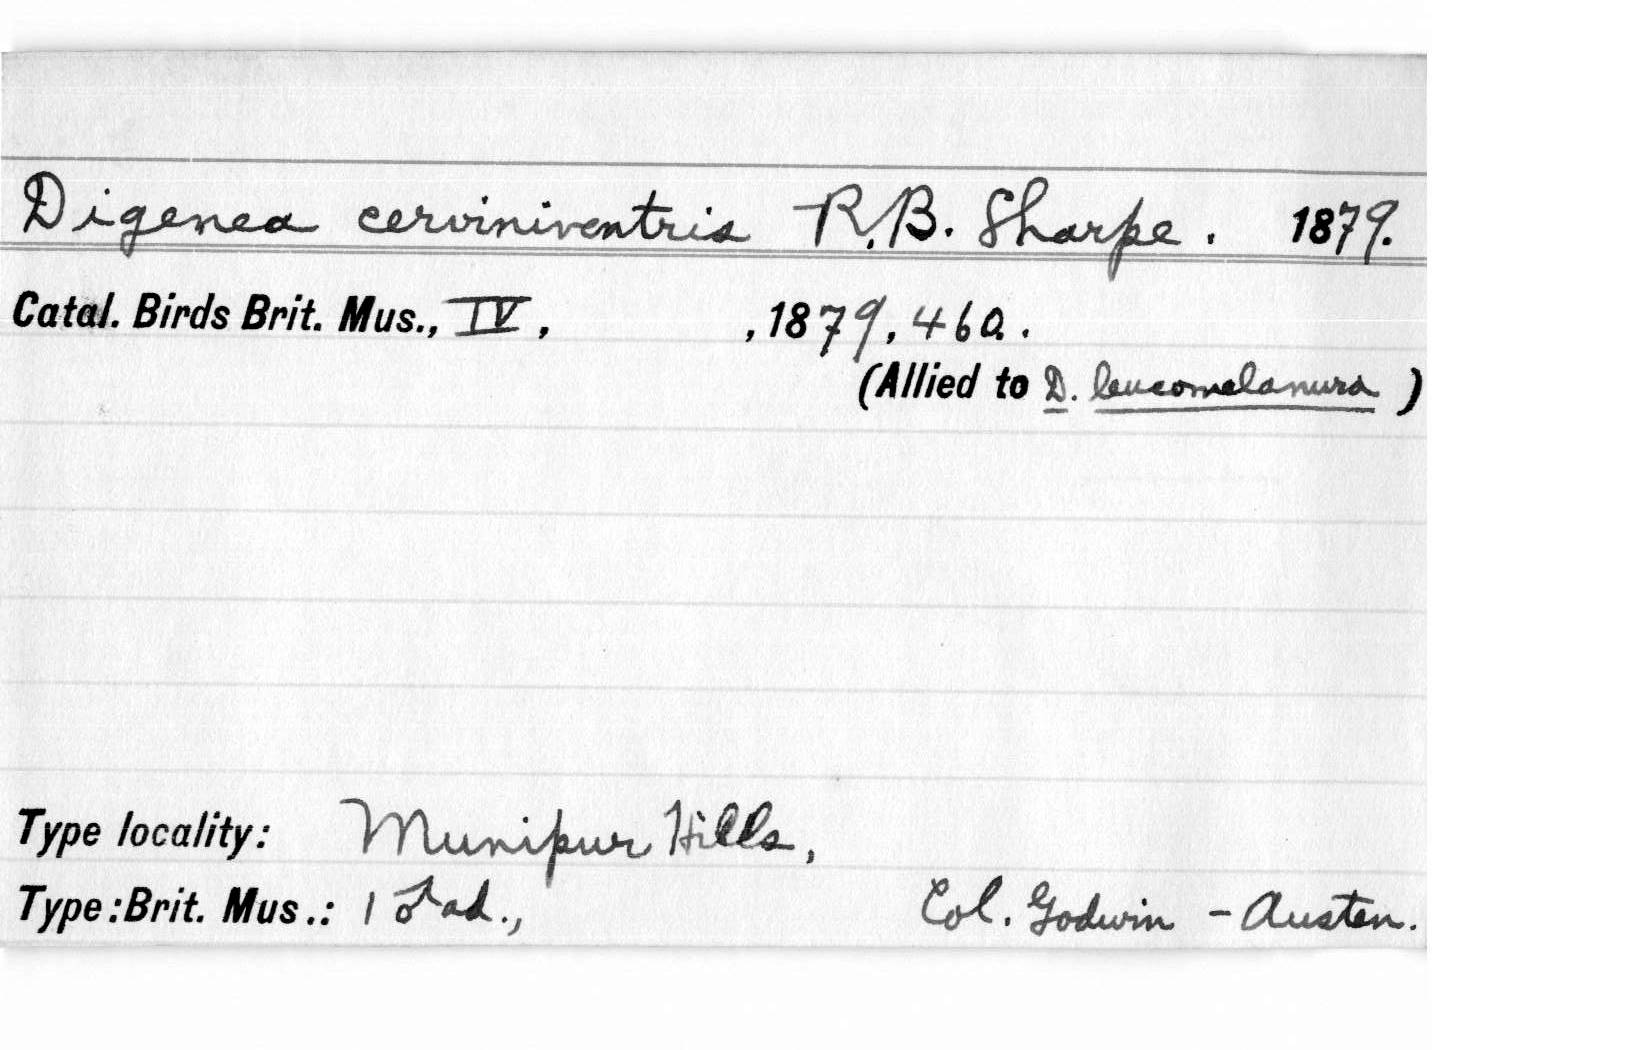 Digenea cerviniventris R.B. Sharpe. 1879.
Catal. Birds Brit. Mus., IV, , 1879, 460.
(Allied to D. leucomelanura )
Type locality: Munipur Hills,
Type: Brit. Mus.: 1 ♂ ad., Col. Godwin - Austen.